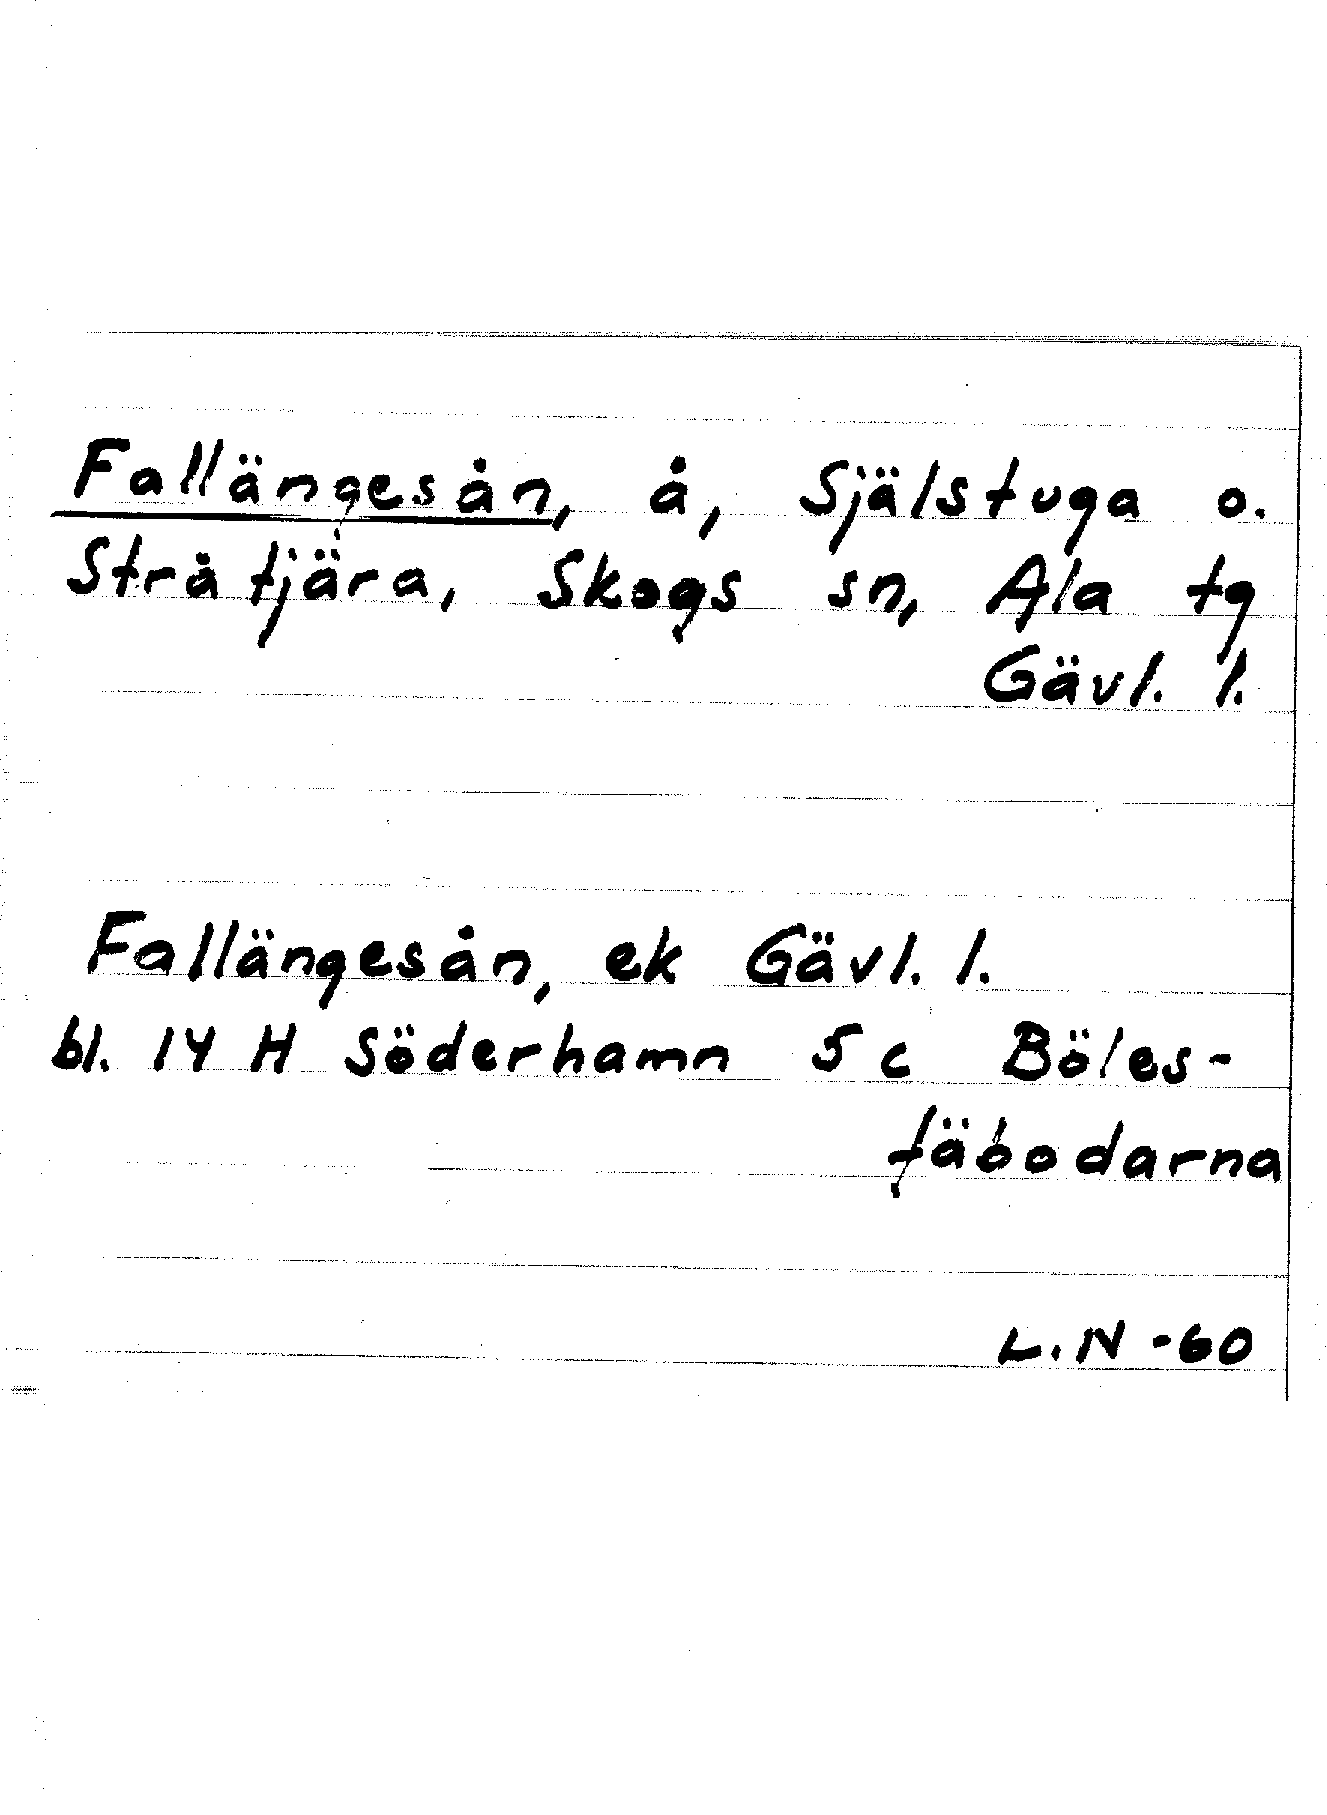 Fallängesån, å, Själstuga o.
Stråtjära, Skogs sn, Ala tg
Gävl. l.
Fallängesån, ek Gävl. l.
bl. 14 H Söderhamn 5 c Böles-
fäbodarna
L. N -60